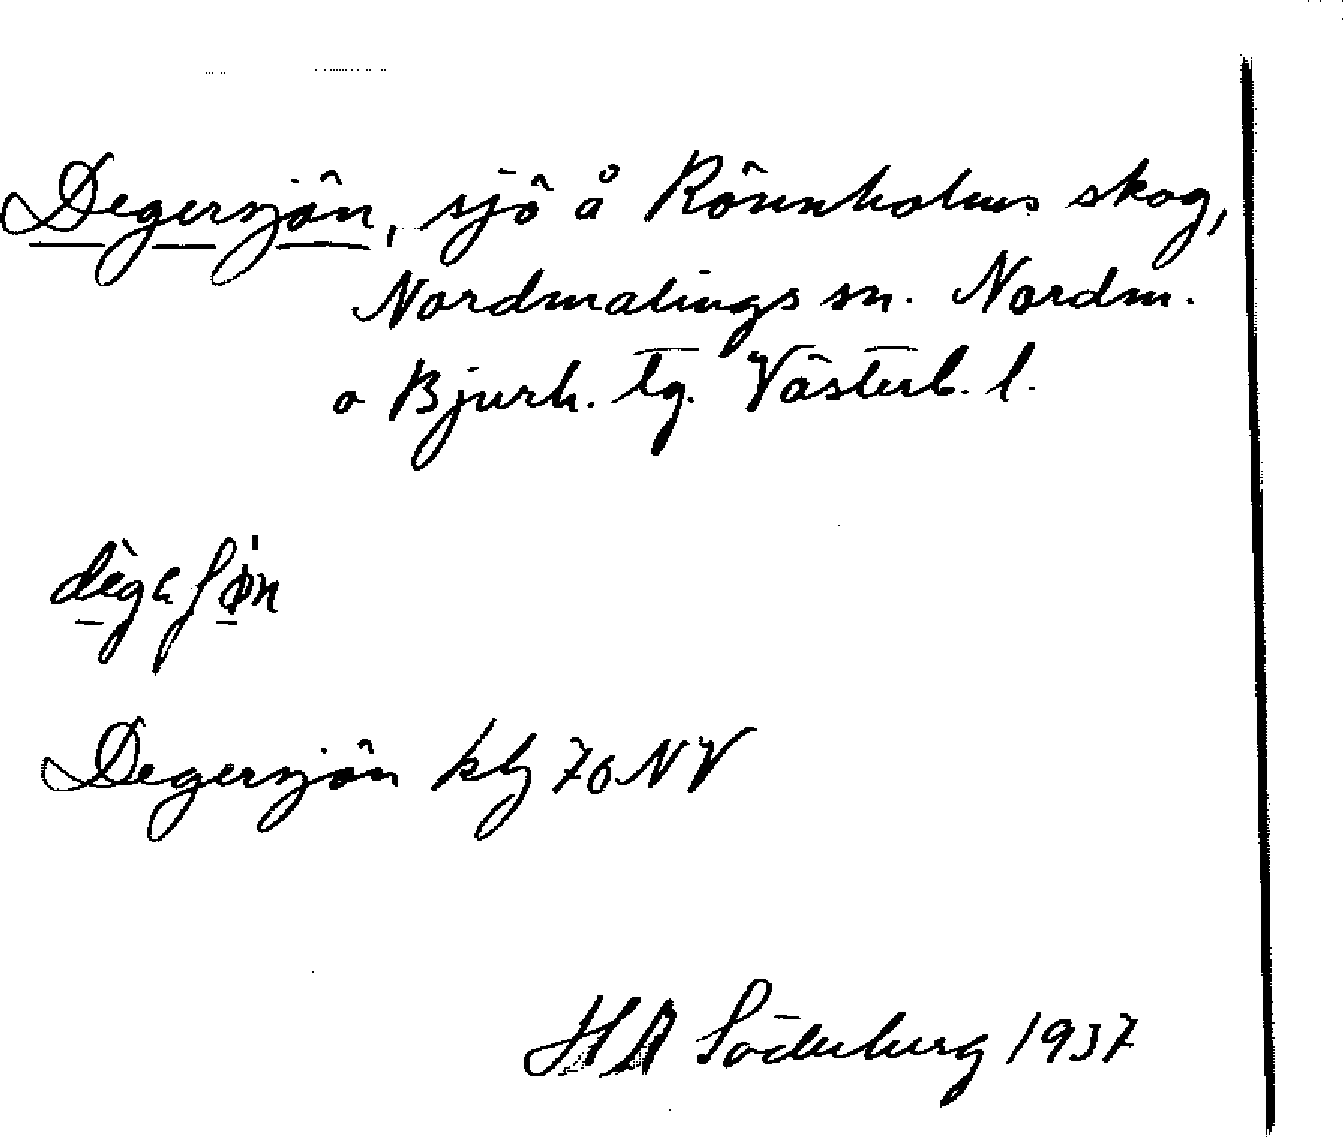 Degersjön, sjö å Rönnholms skog,
Nordmalings sn. Nordm.
o Bjurh. tg. Västerb. l.
Degersjön kbl 70 NV
H A Söderberg 1937